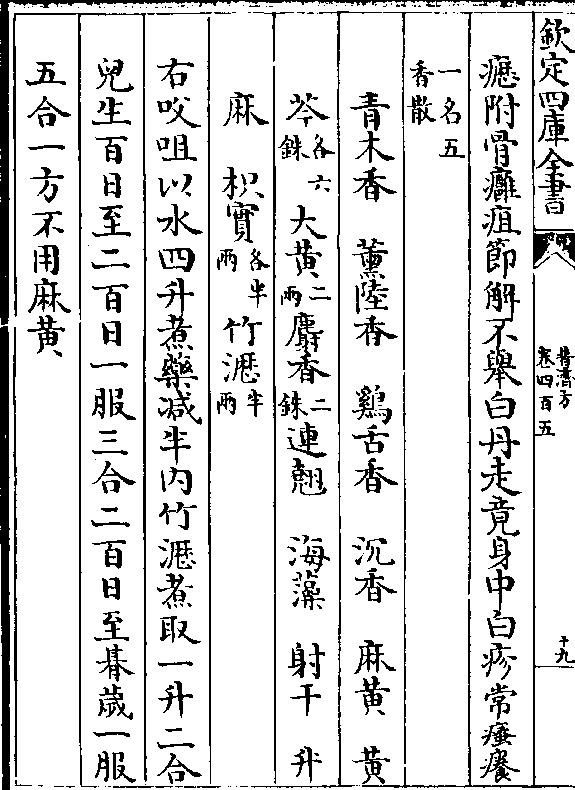 欽定四庫全書
普濟方
卷四百五
十九
癋附骨癰疽節解不舉白丹走竟身中白疹常瘙癢
一名五
香散
青木香 薰陸香 鷄舌香 沉香 麻黄 黄
芩各六銖 大黄二兩 麝香二銖 連翹 海藻 射干 升
麻 枳實各半兩 竹瀝半兩
右㕮咀以水四升煮藥减半内竹瀝煮取一升二合
兒生百日至二百日一服三合二百日至朞歲一服
五合一方不用麻黄